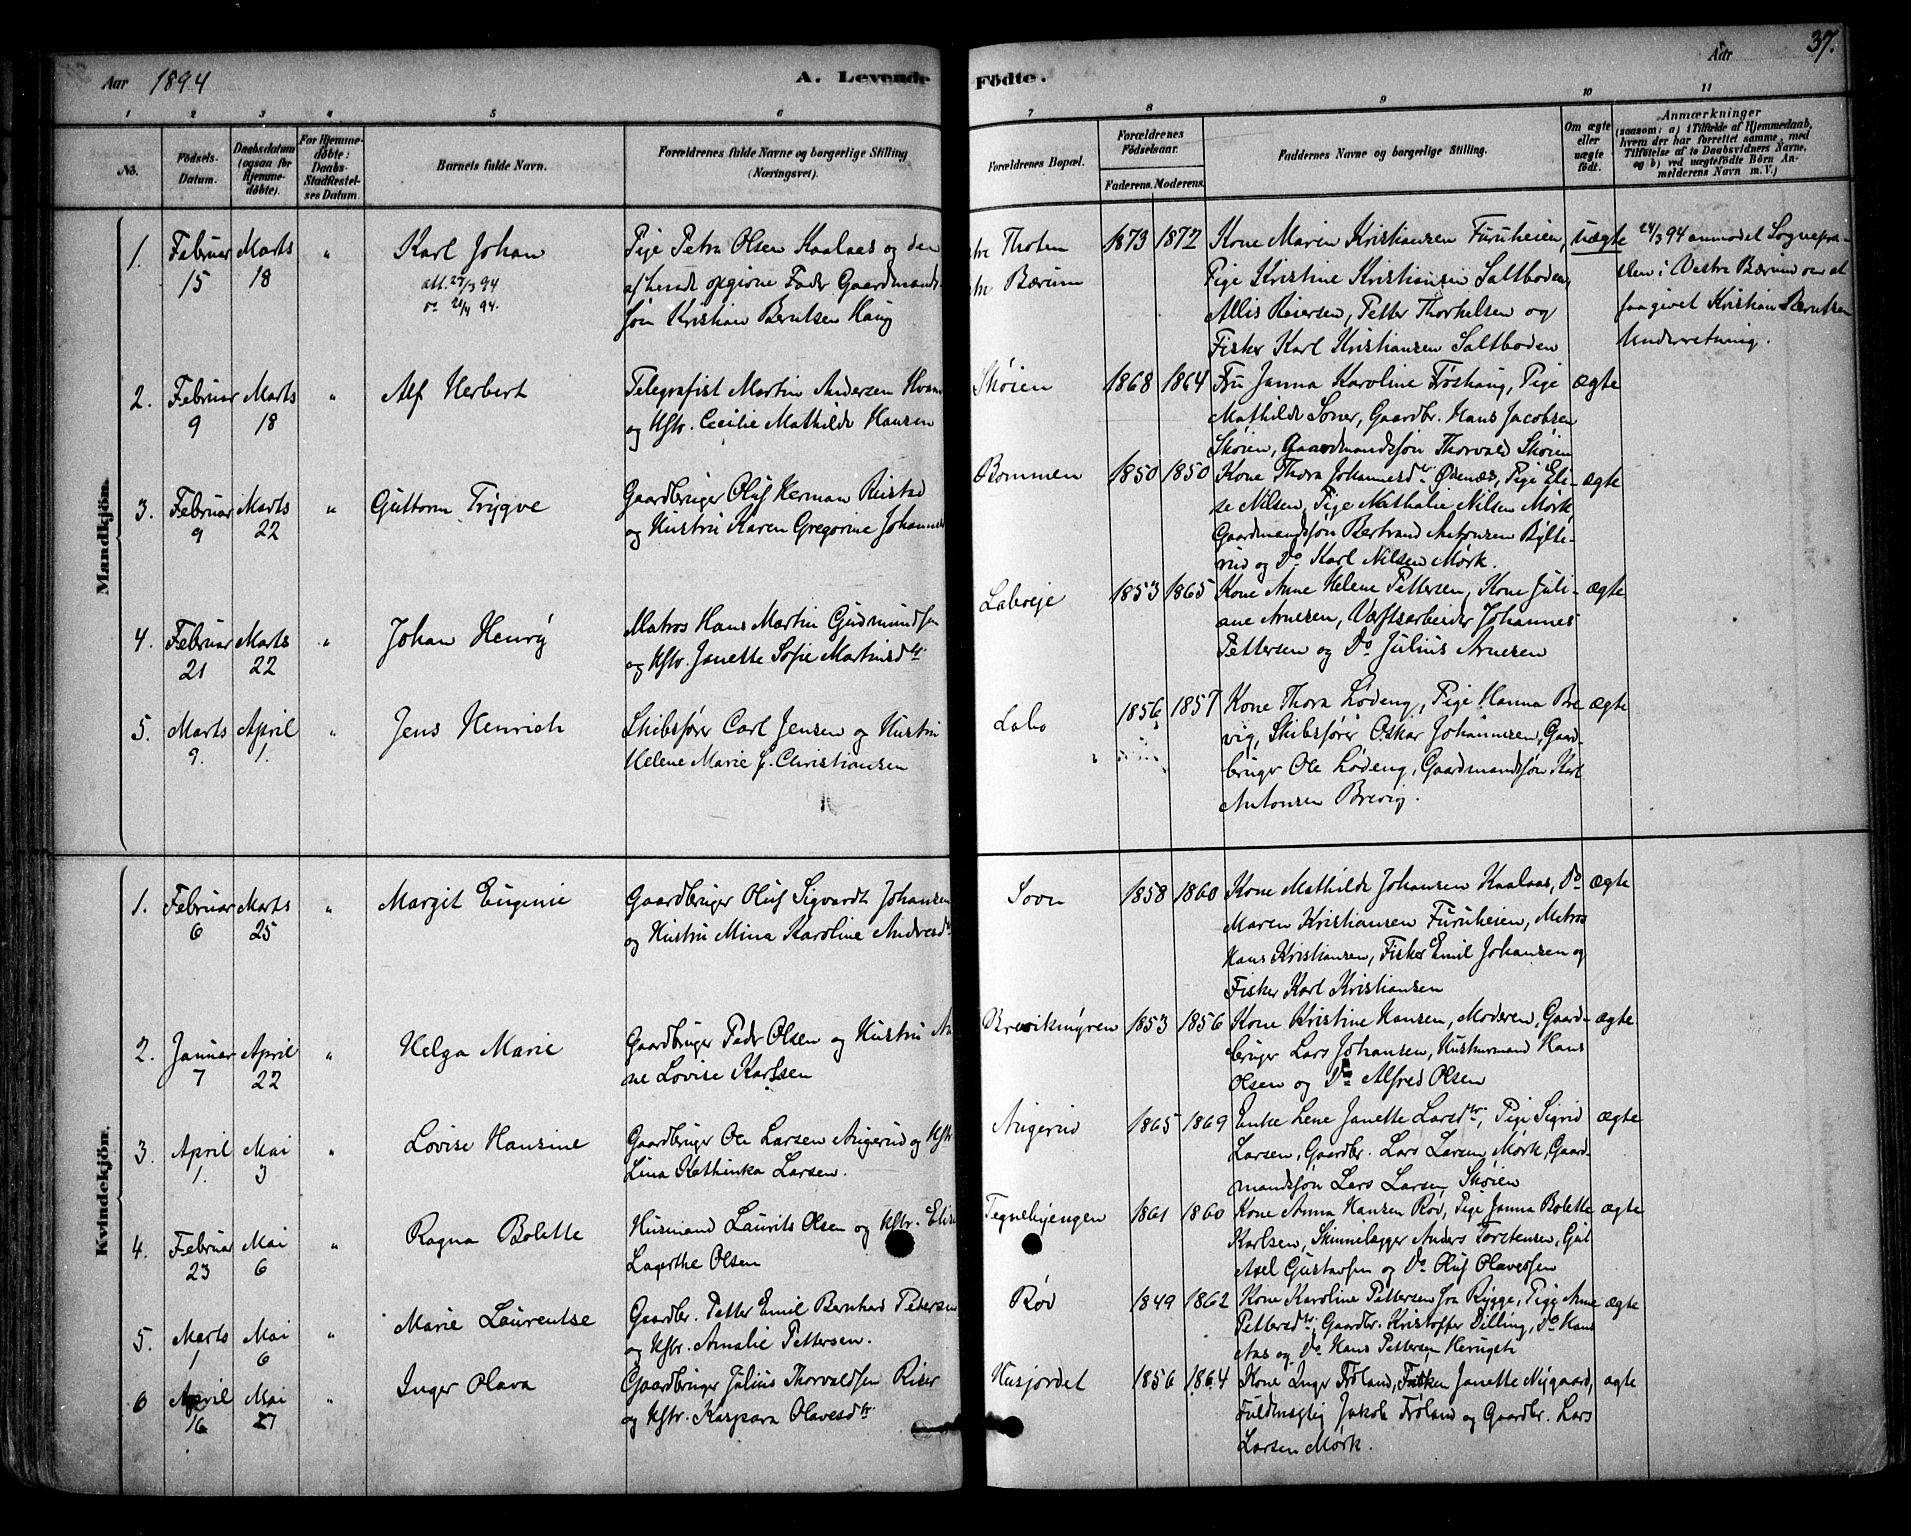 Aar 1894
A. Levende Födte.
Aar
37.
1 2 3 4 5 6 7 8 9 10 11
No.
Födsels-
Datum.
Daabsdatum
(ogsaa for
Hjemme-
döbte).
For Hjemme-
döbte:
Daabs-
Stadfæstel-
ses Datum.
Barnets fulde Navn.
Forældrenes fulde Navne og borgerlige Stilling
(Næringsvei).
Forældrenes Bopæl.
Forældrenes
Födselsaar.
Faderens. Moderens.
Faddernes Navne og borgerlige Stilling.
Om ægte
eller
uægte
født.
Anmærkninger
(saasom: a) i Tilfælde af Hjemmedaab,
hvem der har forrettet samme, med
Tilføielse af to Daabsvidners Navne,
og b) ved uægtefødte Börn An-
melderens Navn m. V.)
Mandkjön.
1. Februar 15
Marts 18
"
Karl Johan
att. 27/3 94
do 21/4 94.
Pige Petra Olsen Kaalaas og den
af hende opgivne Fader Gaardmands-
søn Kristian Berntsen Haug
Thoten
Bærum
1873 1872
Kone Maren Kristiansen Furuheien,
Pige Kristine Kristiansen Saltboden,
Allis Reiersen, Petter Thorkelsen og
Fisker Karl Kristiansen Saltboden
uægte
24/3 94 anmodet Sognepræ-
sten i Vestre Bærum om at
faa givet Kristian Berntsen
Underretning.
2. Februar 9
Marts 18
"
Alf Herbert
Telegrafist Martin Andersen
og Hstr. Cecilie Mathilde Hansen
Skøien
1868 1864
Fru Janna Karoline Frøshaug, Pige
Mathilde Soner, Gaardbr. Hans Jacobsen
Skøien, Gaardmandssøn Thorvald Skøien
ægte
3. Februar 9
Marts 22
"
Guttorm Trygve
Gaardbruger Oluf Herman Rustad
og Hustru Karen Gregorine Johannes
Bommen
1850 1850
Kone Thora Johannesdtr Ødenæs, Pige Eli-
se Nilsen, Pige Mathalie Nilsen Mørk,
Gaardmandssøn Bertrand Antonsen Bylte-
rud og Do Karl Nilsen Mørk.
ægte
4. Februar 21
Marts 22
"
Johan Henry
Matros Hans Martin Gudmundsen
og Hstr. Janette Sofie Martinsdtr.
Laboeje
1853 1865
Kone Anne Helene Pettersen, Kone Juli-
ane Arnesen, Værftsarbeider Johannes
Pettersen og Do Julius Arnesen
ægte
5. Marts 9.
April 1.
"
Jens Henrich
Skibsfører Carl Jensen og Hustru
Helene Marie f. Christiansen
Labo
1856 1857
Kone Thora Lødeng, Pige Hanna Bre-
vig, Skibsfører Oskar Johannesen, Gaard-
bruger Ole Lødeng, Gaardmandssøn Karl
Antonsen Brevig.
ægte
Kvindekjön.
1. Februar 6
Marts 25
"
Margit Eugenie
Gaardbruger Oluf Sigvardt Johansen
og Hustru Mina Karoline Andersdtr
Sovn
1858 1860
Kone Mathilde Johansen Kaalaas, Do
Maren Kristiansen Furuheien, Matros
Hans Kristiansen, Fisker Emil Johansen og
Fisker Karl Kristiansen
ægte
2. Januar 7
April 22
"
Helga Marie
Gaardbruger Peder Olsen og Hustru An-
ne Lovise Karlsen
1853 1856
Kone Kristine Hansen, Moderen, Gaard-
bruger Lars Johansen, Husmand Hans
Olsen og Do Alfred Olsen
ægte
3. April 1.
Mai 3
"
Lovise Hansine
Gaardbruger Ole Larsen Augerud og Hstr.
Lina Kathinka Larsen.
Augerud
1865 1869
Enke Lene Janette Larsdtr., Pige Sigrid
Larsen, Gaardbr. Lars Larsen Mørk, Gaard-
mandssøn Lars Larsen Skøien
ægte
4. Februar 23
Mai 6
"
Ragna Bolette
Husmand Laurits Olsen og Hstr. Elise
Lagerthe Olsen
Tegnebyengen
1861 1860
Kone Anna Hansen Røv, Pige Janna Bolette
Karlsen, Skinnelægger Anders Torstensen, Gut
Axel Gustavsen og Do Oluf Olavessen
ægte
5. Marts 1
Mai 6
"
Marie Laurentse
Gaardbr. Petter Emil Bernhard Petersen
og Hstr. Amalie Pettersen.
Røv
1849 1862
Kone Karoline Pettersen fra Rygge, Pige Anne
Pettersdtr, Gaardbr. Kristoffer Dilling, Do Hans
Aas og Do Hans Pettersen
ægte
6 April 16
Mai 27
"
Inger Olava
Gaardbruger Julius Thorvaldsen Riser
og Hstr. Kaspara Olavesdtr.
Husjordet
1856 1864
Kone Inger Frøland, Janette Nygaard,
Fuldmægtig Jakob Frøland og Gaardbr. Lars
Larsen Mørk.
ægte